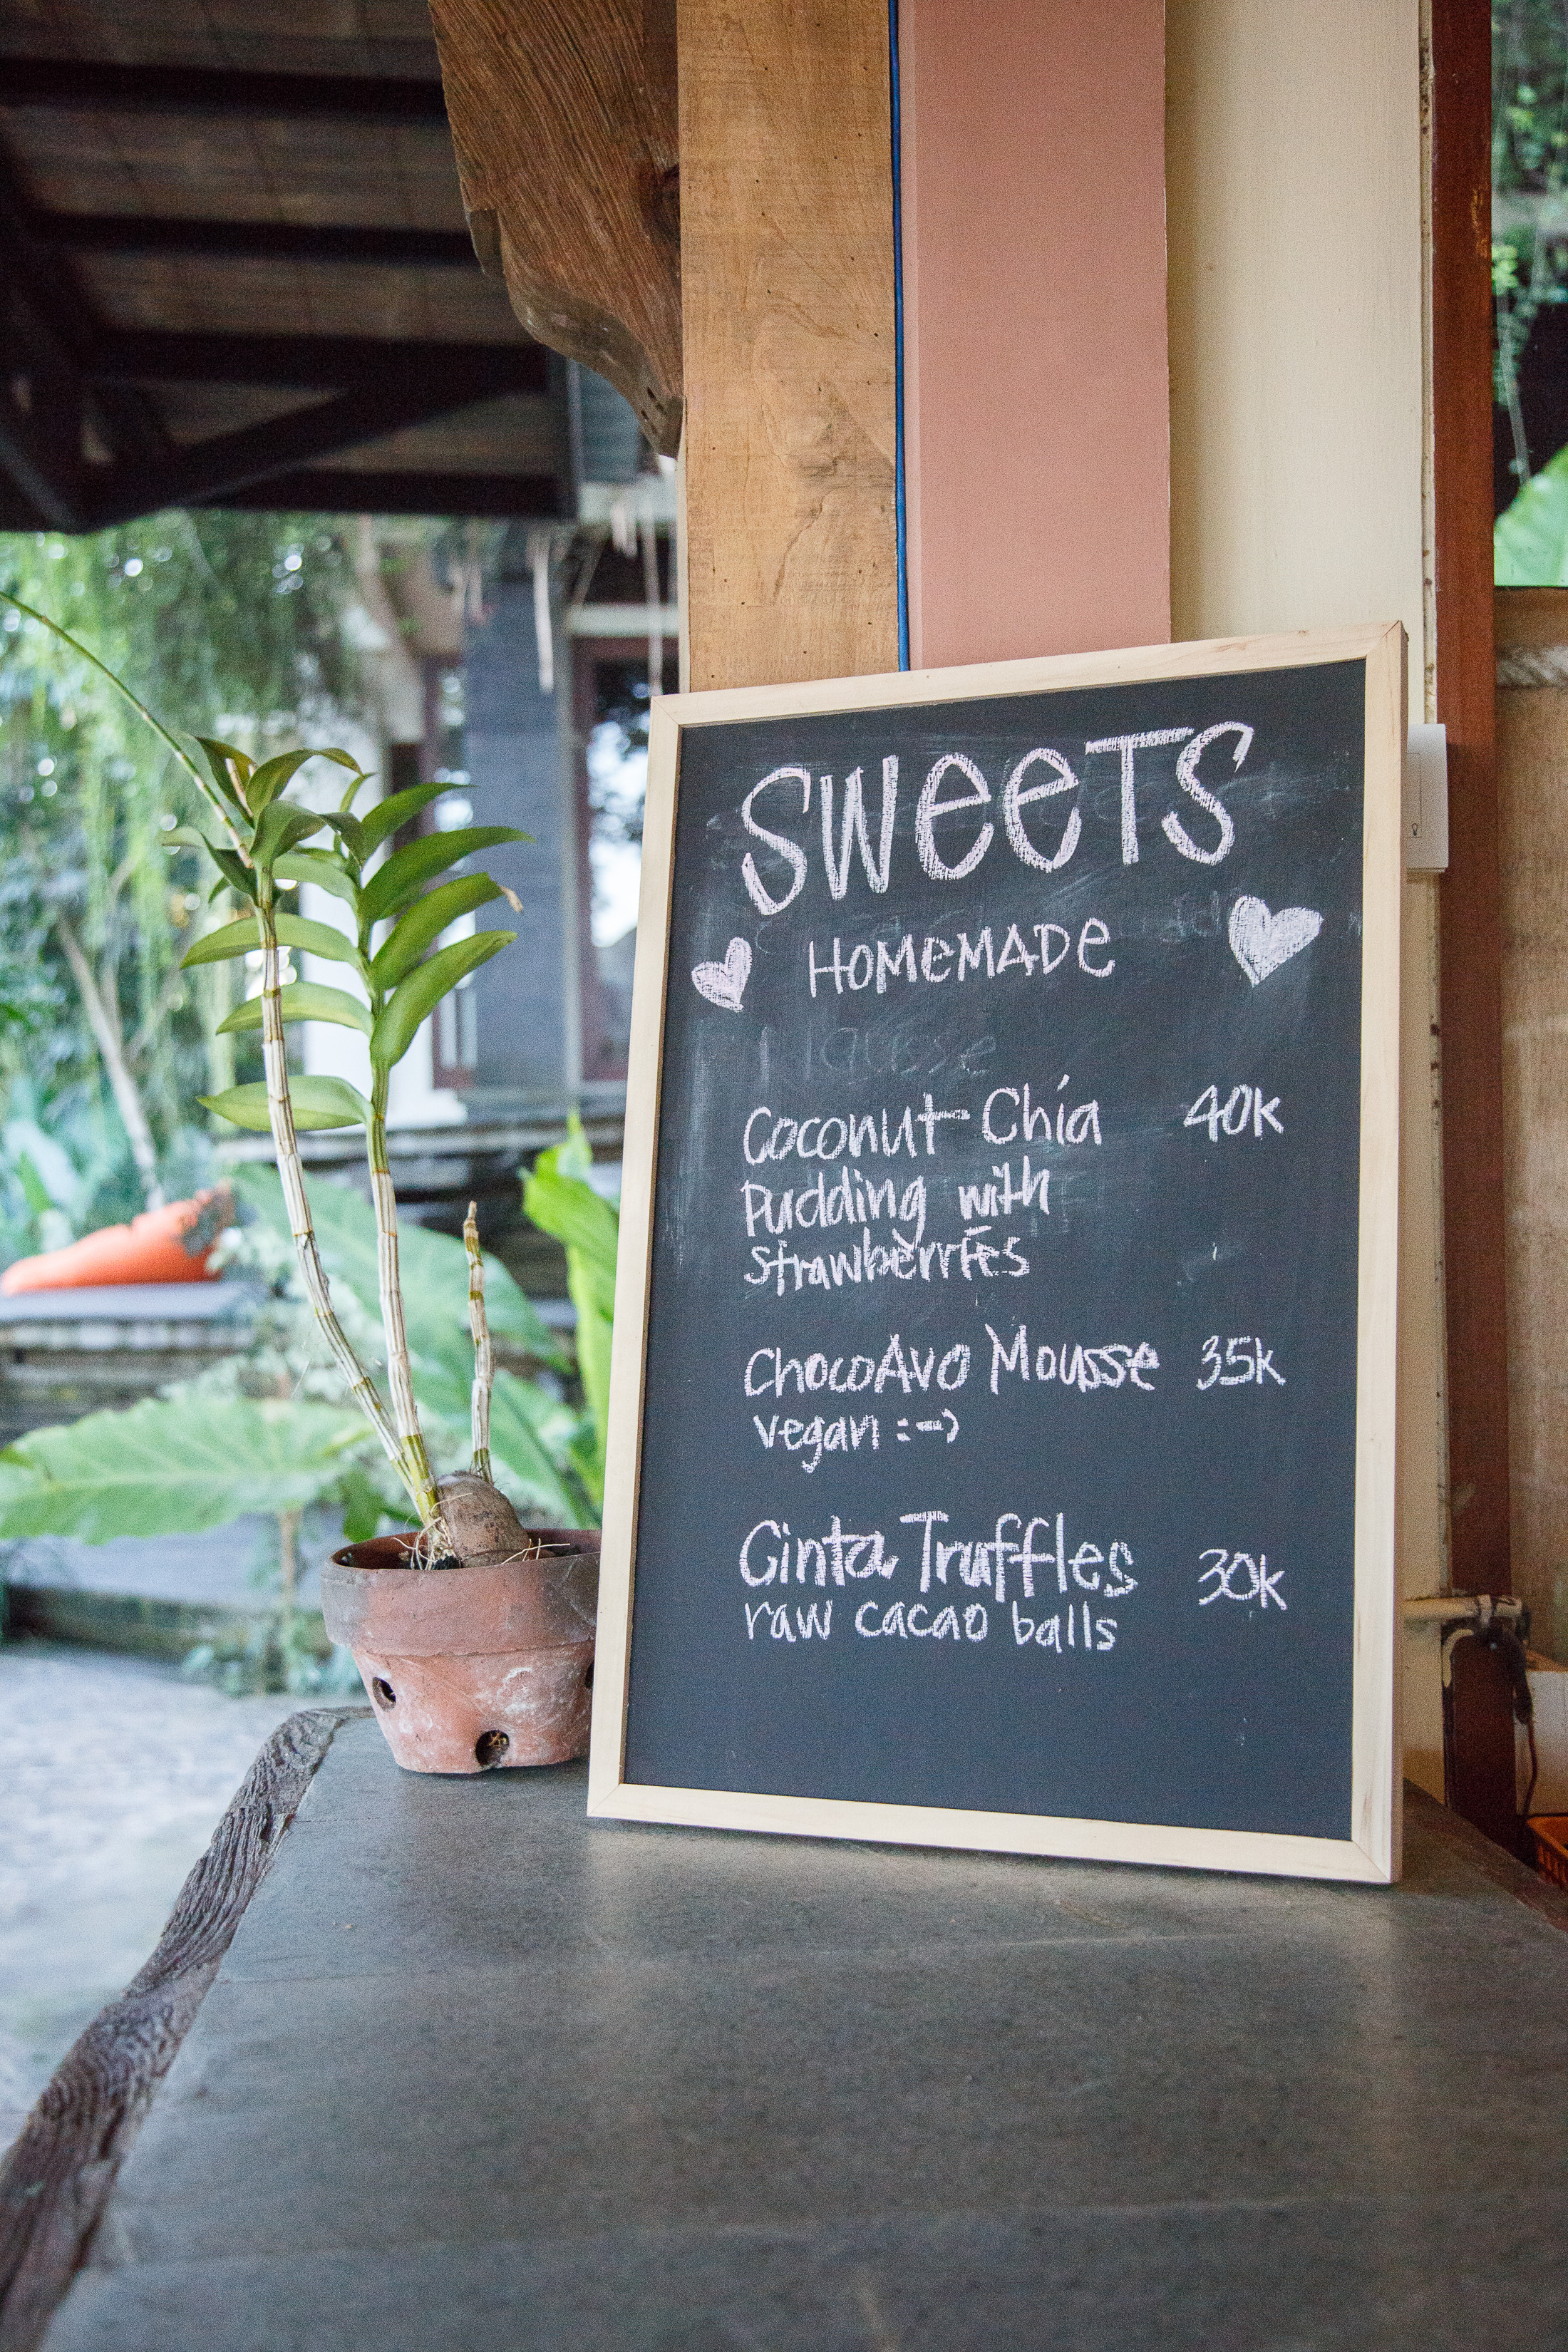 SWEETS
HOMEMADE
Coconut-Chia 40k
Pudding with
strawberries
ChocoAvo Mousse 35k
vegan :-)
Cinta Truffles 30k
raw cacao balls